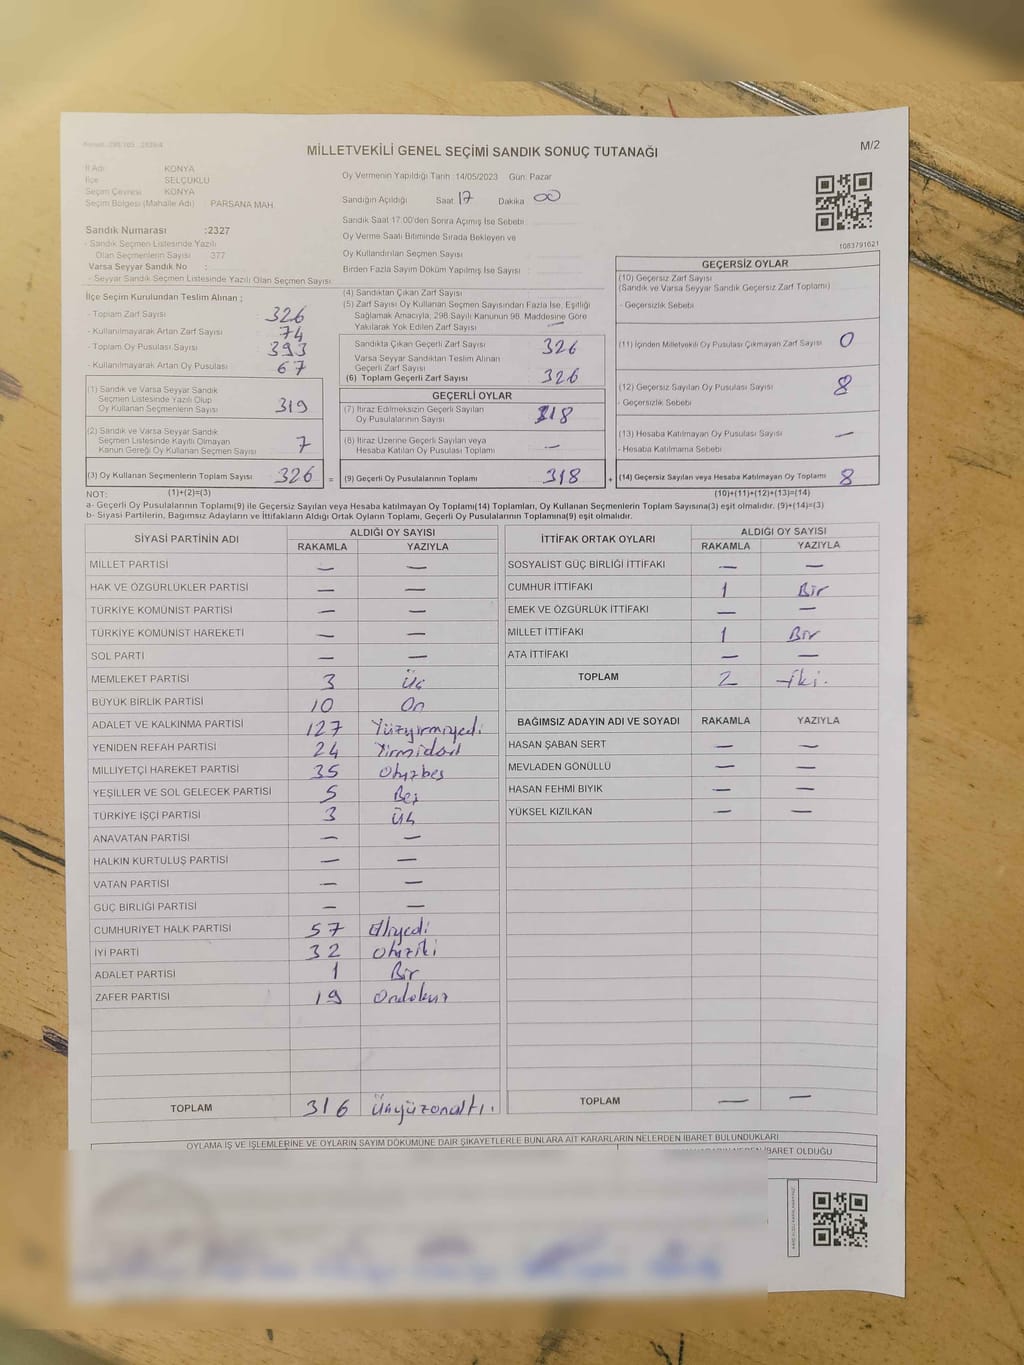 M/2
MİLLETVEKİLİ GENEL SEÇİMİ SANDIK SONUÇ TUTANAĞI
İl Adı KONYA
İlçe SELÇUKLU
Seçim Çevresi KONYA
Seçim Bölgesi (Mahalle Adı) : PARSANA MAH.
Sandık Numarası :2327
- Sandık Seçmen Listesinde Yazılı
Olan Seçmenlerin Sayısı : 377
Varsa Seyyar Sandık No :
- Seyyar Sandık Seçmen Listesinde Yazılı Olan Seçmen Sayısı
Oy Vermenin Yapıldığı Tarih :14/05/2023 Gün: Pazar
Sandığın Açıldığı Saat 17 Dakika 00
Sandık Saat 17:00'den Sonra Açılmış İse Sebebi
Oy Verme Saati Bitiminde Sırada Bekleyen ve
Oy Kullandırılan Seçmen Sayısı
Birden Fazla Sayım Döküm Yapılmış İse Sayısı
1083791621
İlçe Seçim Kurulundan Teslim Alınan ;
- Toplam Zarf Sayısı 326
- Kullanılmayarak Artan Zarf Sayısı 74
- Toplam Oy Pusulası Sayısı 393
- Kullanılmayarak Artan Oy Pusulası 67
(1) Sandık ve Varsa Seyyar Sandık
Seçmen Listesinde Yazılı Olup
Oy Kullanan Seçmenlerin Sayısı 319
(2) Sandık ve Varsa Seyyar Sandık
Seçmen Listesinde Kayıtlı Olmayan
Kanun Gereği Oy Kullanan Seçmen Sayısı 7
(3) Oy Kullanan Seçmenlerin Toplam Sayısı 326 =
(4) Sandıktan Çıkan Zarf Sayısı
(5) Zarf Sayısı Oy Kullanan Seçmen Sayısından Fazla İse, Eşitliği
Sağlamak Amacıyla, 298 Sayılı Kanunun 98. Maddesine Göre
Yakılarak Yok Edilen Zarf Sayısı —
Sandıkta Çıkan Geçerli Zarf Sayısı 326
Varsa Seyyar Sandıktan Teslim Alınan
Geçerli Zarf Sayısı
(6) Toplam Geçerli Zarf Sayısı 326
GEÇERLİ OYLAR
(7) İtiraz Edilmeksizin Geçerli Sayılan
Oy Pusulalarının Sayısı 318
(8) İtiraz Üzerine Geçerli Sayılan veya
Hesaba Katılan Oy Pusulası Toplamı —
(9) Geçerli Oy Pusulalarının Toplamı 318 +
GEÇERSİZ OYLAR
(10) Geçersiz Zarf Sayısı
(Sandık ve Varsa Seyyar Sandık Geçersiz Zarf Toplamı)
- Geçersizlik Sebebi
(11) İçinden Milletvekili Oy Pusulası Çıkmayan Zarf Sayısı 0
(12) Geçersiz Sayılan Oy Pusulası Sayısı 8
- Geçersizlik Sebebi
(13) Hesaba Katılmayan Oy Pusulası Sayısı —
- Hesaba Katılmama Sebebi
(14) Geçersiz Sayılan veya Hesaba Katılmayan Oy Toplamı 8
NOT: (1)+(2)=(3) (10)+(11)+(12)+(13)=(14)
a- Geçerli Oy Pusulalarının Toplamı(9) ile Geçersiz Sayılan veya Hesaba katılmayan Oy Toplamı(14) Toplamları, Oy Kullanan Seçmenlerin Toplam Sayısına(3) eşit olmalıdır. (9)+(14)=(3)
b- Siyasi Partilerin, Bağımsız Adayların ve İttifakların Aldığı Ortak Oyların Toplamı, Geçerli Oy Pusulalarının Toplamına(9) eşit olmalıdır.
SİYASİ PARTİNİN ADI ALDIĞI OY SAYISI
RAKAMLA YAZIYLA
MİLLET PARTİSİ — —
HAK VE ÖZGÜRLÜKLER PARTİSİ — —
TÜRKİYE KOMÜNİST PARTİSİ — —
TÜRKİYE KOMÜNİST HAREKETİ — —
SOL PARTİ — —
MEMLEKET PARTİSİ 3 Üç
BÜYÜK BİRLİK PARTİSİ 10 On
ADALET VE KALKINMA PARTİSİ 127 Yüzyirmiyedi
YENİDEN REFAH PARTİSİ 24 Yirmidört
MİLLİYETÇİ HAREKET PARTİSİ 35 Otuzbeş
YEŞİLLER VE SOL GELECEK PARTİSİ 5 Beş
TÜRKİYE İŞÇİ PARTİSİ 3 Üç
ANAVATAN PARTİSİ — —
HALKIN KURTULUŞ PARTİSİ — —
VATAN PARTİSİ — —
GÜÇ BİRLİĞİ PARTİSİ — —
CUMHURİYET HALK PARTİSİ 57 Elliyedi
İYİ PARTİ 32 Otuziki
ADALET PARTİSİ 1 Bir
ZAFER PARTİSİ 19 Ondokuz
TOPLAM 316 Üçyüzonaltı.
İTTİFAK ORTAK OYLARI ALDIĞI OY SAYISI
RAKAMLA YAZIYLA
SOSYALİST GÜÇ BİRLİĞİ İTTİFAKI — —
CUMHUR İTTİFAKI 1 Bir
EMEK VE ÖZGÜRLÜK İTTİFAKI — —
MİLLET İTTİFAKI 1 Bir
ATA İTTİFAKI — —
TOPLAM 2 İki.
BAĞIMSIZ ADAYIN ADI VE SOYADI RAKAMLA YAZIYLA
HASAN ŞABAN SERT — —
MEVLADEN GÖNÜLLÜ — —
HASAN FEHMİ BIYIK — —
YÜKSEL KIZILKAN — —
TOPLAM — —
OYLAMA İŞ VE İŞLEMLERİNE VE OYLARIN SAYIM DÖKÜMÜNE DAİR ŞİKAYETLERLE BUNLARA AİT KARARLARIN NELERDEN İBARET BULUNDUKLARI
İBARET OLDUĞU